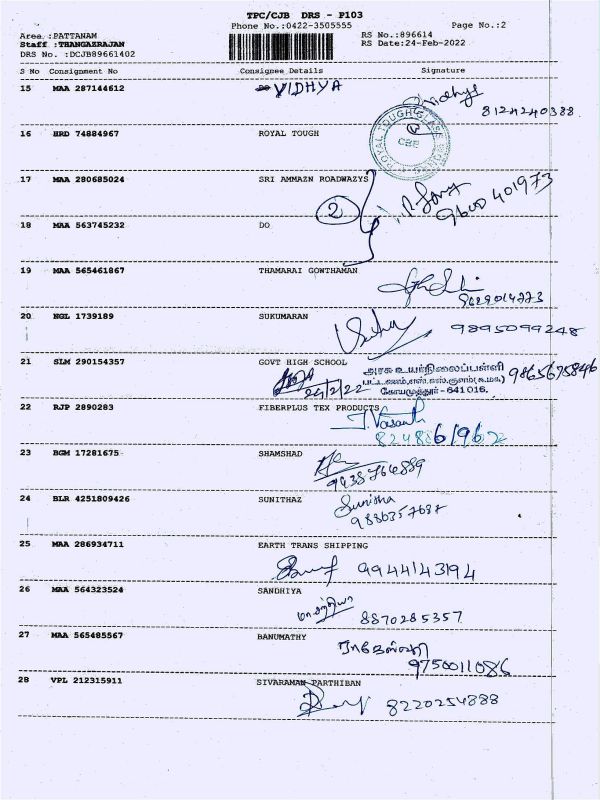 TPC/CJB DRS - P103
Phone No.:0422-3505555
Page No.:2
Area :PATTANAM
Staff :THANGAZRAJAN
DRS No. :DCJB89661402
RS No.:896614
RS Date:24-Feb-2022
S No Consignment No Consignee Details Signature
15 MAA 287144612 VIDHYA Vidhya
8124240388
16 HRD 74884967 ROYAL TOUGH
ROYAL TOUGH GLASS
CBE
17 MAA 280685024 SRI AMMAZN ROADWAZYS
2
9600 401973
18 MAA 563745232 DO
19 MAA 565461867 THAMARAI GOWTHAMAN
8629014273
20 NGL 1739189 SUKUMARAN
9895099248
21 SLM 290154357 GOVT HIGH SCHOOL
24/2/22
அரசு உயர்நிலைப்பள்ளி
பட்டணம், எஸ்.எஸ்.குளம்(உ.மா.)
கோயமுத்தூர் - 641 016.
9865675846
22 RJP 2890283 FIBERPLUS TEX PRODUCTS
J. Vasanth
8248861962
23 BGM 17281675 SHAMSHAD
9438764889
24 BLR 4251809426 SUNITHAZ
Sunitha
9886357687
25 MAA 286934711 EARTH TRANS SHIPPING
9944143194
26 MAA 564323524 SANDHIYA
8870285357
27 MAA 565485567 BANUMATHY
ராஜேஸ்வரி
9750011086
28 VPL 212315911 SIVARAMAN PARTHIBAN
8220254888